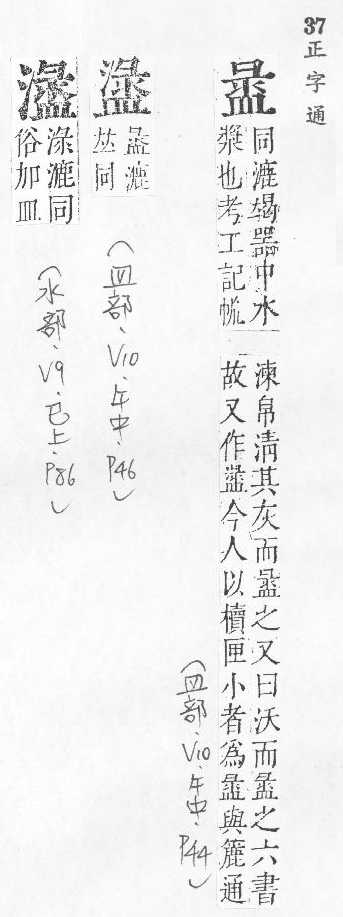 37正字通
盝
同漉竭器中水
漿也考工記㡆
湅帛清其灰而盝之又曰沃而盝之六書
故又作今人以櫝匣小者爲盝與簏通
（皿部、V10、午中、P44）
盝漉
𠀤同
（皿部、V10、午中、P46）
淥漉同
俗加皿
（水部、V9、巳上、P86）